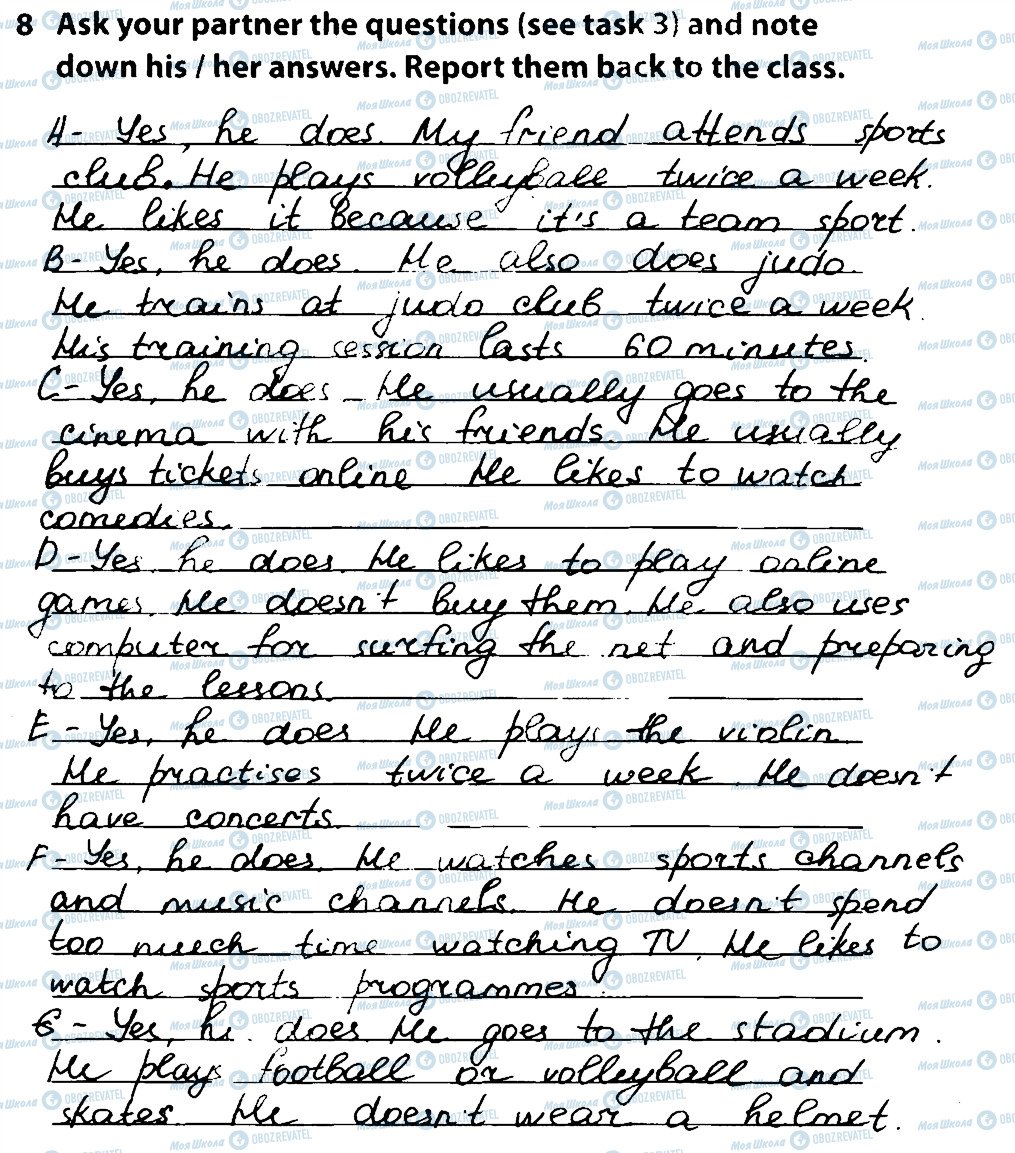 8 Ask your partner the questions (see task 3) and note
down his / her answers. Report them back to the class.
A - Yes, he does. My friend attends sports
club. He plays volleyball twice a week.
He likes it because it's a team sport.
B - Yes, he does. He also does judo.
He trains at judo club twice a week.
His training session lasts 60 minutes.
C - Yes, he does. He usually goes to the
cinema with his friends. He usually
buys tickets online He likes to watch
comedies.
D - Yes he does. He likes to play online
games. He doesn't buy them. He also uses
computer for surfing the net and preparing
to the lessons.
E - Yes, he does He plays the violin
He practises twice a week. He doesn't
have concerts.
F - Yes, he does. He watches sports channels
and music channels. He doesn't spend
too much time watching TV. He likes to
watch sports programmes.
G - Yes, he does He goes to the stadium.
He plays football or volleyball and
skates. He doesn't wear a helmet.
Моя Школа OBOZREVATEL